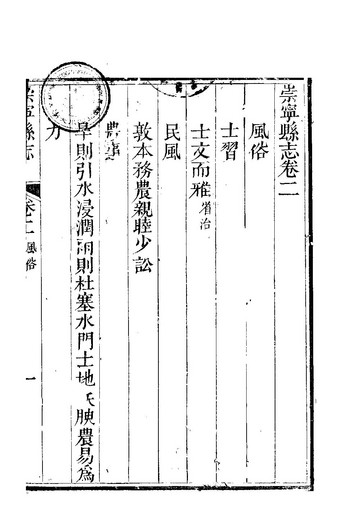 崇寧縣志卷二
風俗
士習
士文而雅省治
民風
敦本務農親睦少訟
農事
旱則引水浸潤雨則杜塞水門土地 腴農易為
力
崇寧縣志 卷二 風俗 一